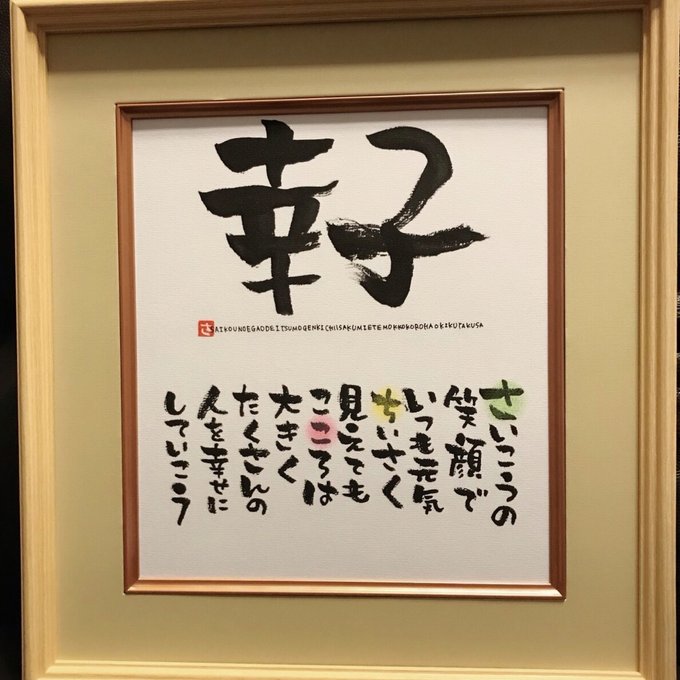 幸子
さ
SAIKOUNOEGAODEITSUMOGENKICHIISAKUMIETEMOKKOKOROHAOKIKUTAKUSA
さいこうの
笑顔で
いつも元気
ちいさく
見えても
こころは
大きく
たくさんの
人を幸せに
していこう